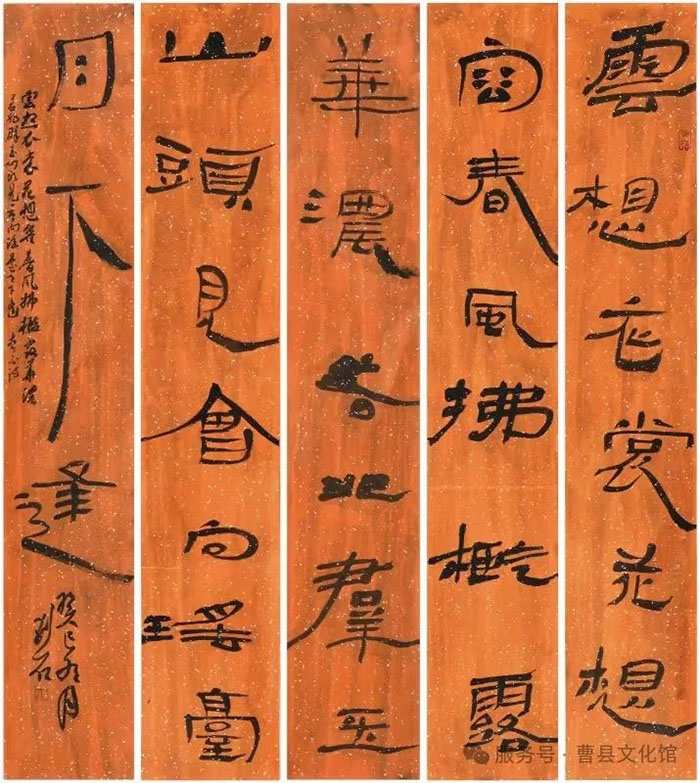 雲想衣裳花想
容春風拂檻露
華濃若非羣玉
山頭見會向瑤臺
月下逢
雲想衣裳花想容春風拂檻露華濃
若非群玉山頭見會向瑤臺月下逢
癸巳
服务号 · 曹县文化馆